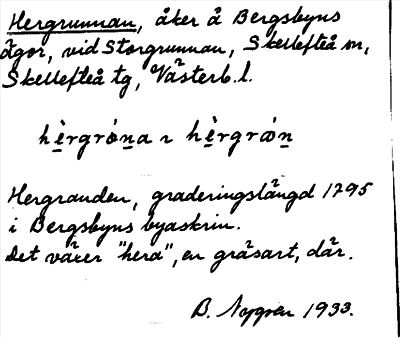 Hergrunnan, åker å Bergsbyns
ägor, vid Storgrunnan, Skellefteå sn,
Skellefteå tg, Västerb. l.
hèrgróna ~ hèrgrón
Hergrunden, graderingslängd 1795
i Bergsbyns byaskrin.
Det växer "hera", en gräsart, där.
B. Nygren 1933.